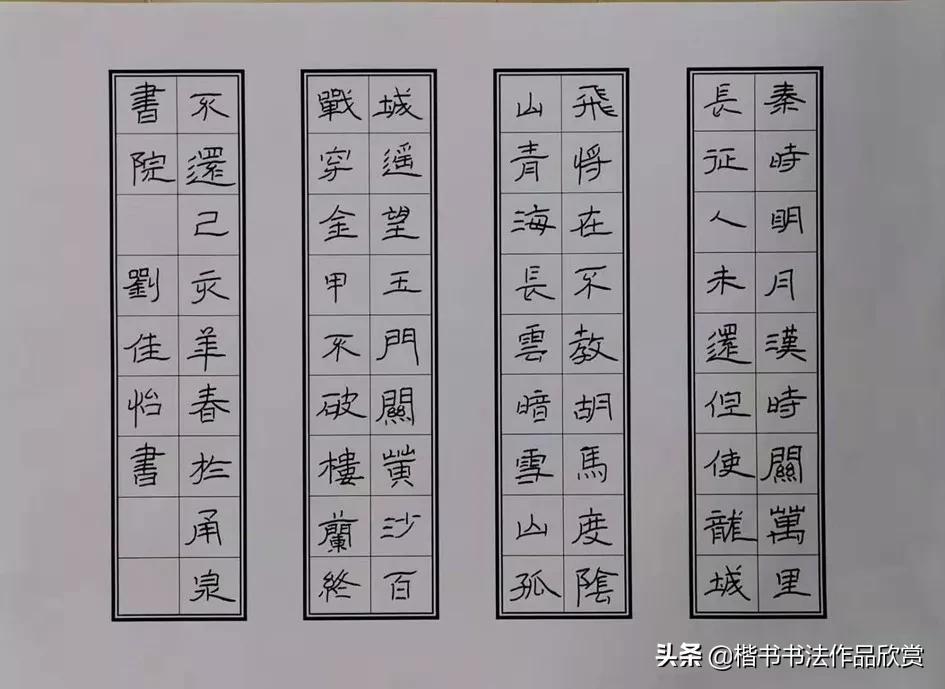 秦時明月漢時關萬里
長征人未還但使龍城
飛將在不教胡馬度陰
山青海長雲暗雪山孤
城遥望玉門關黄沙百
戰穿金甲不破樓蘭終
不還己亥年春於甬泉
書院 劉佳怡書
头条 @楷书书法作品欣赏